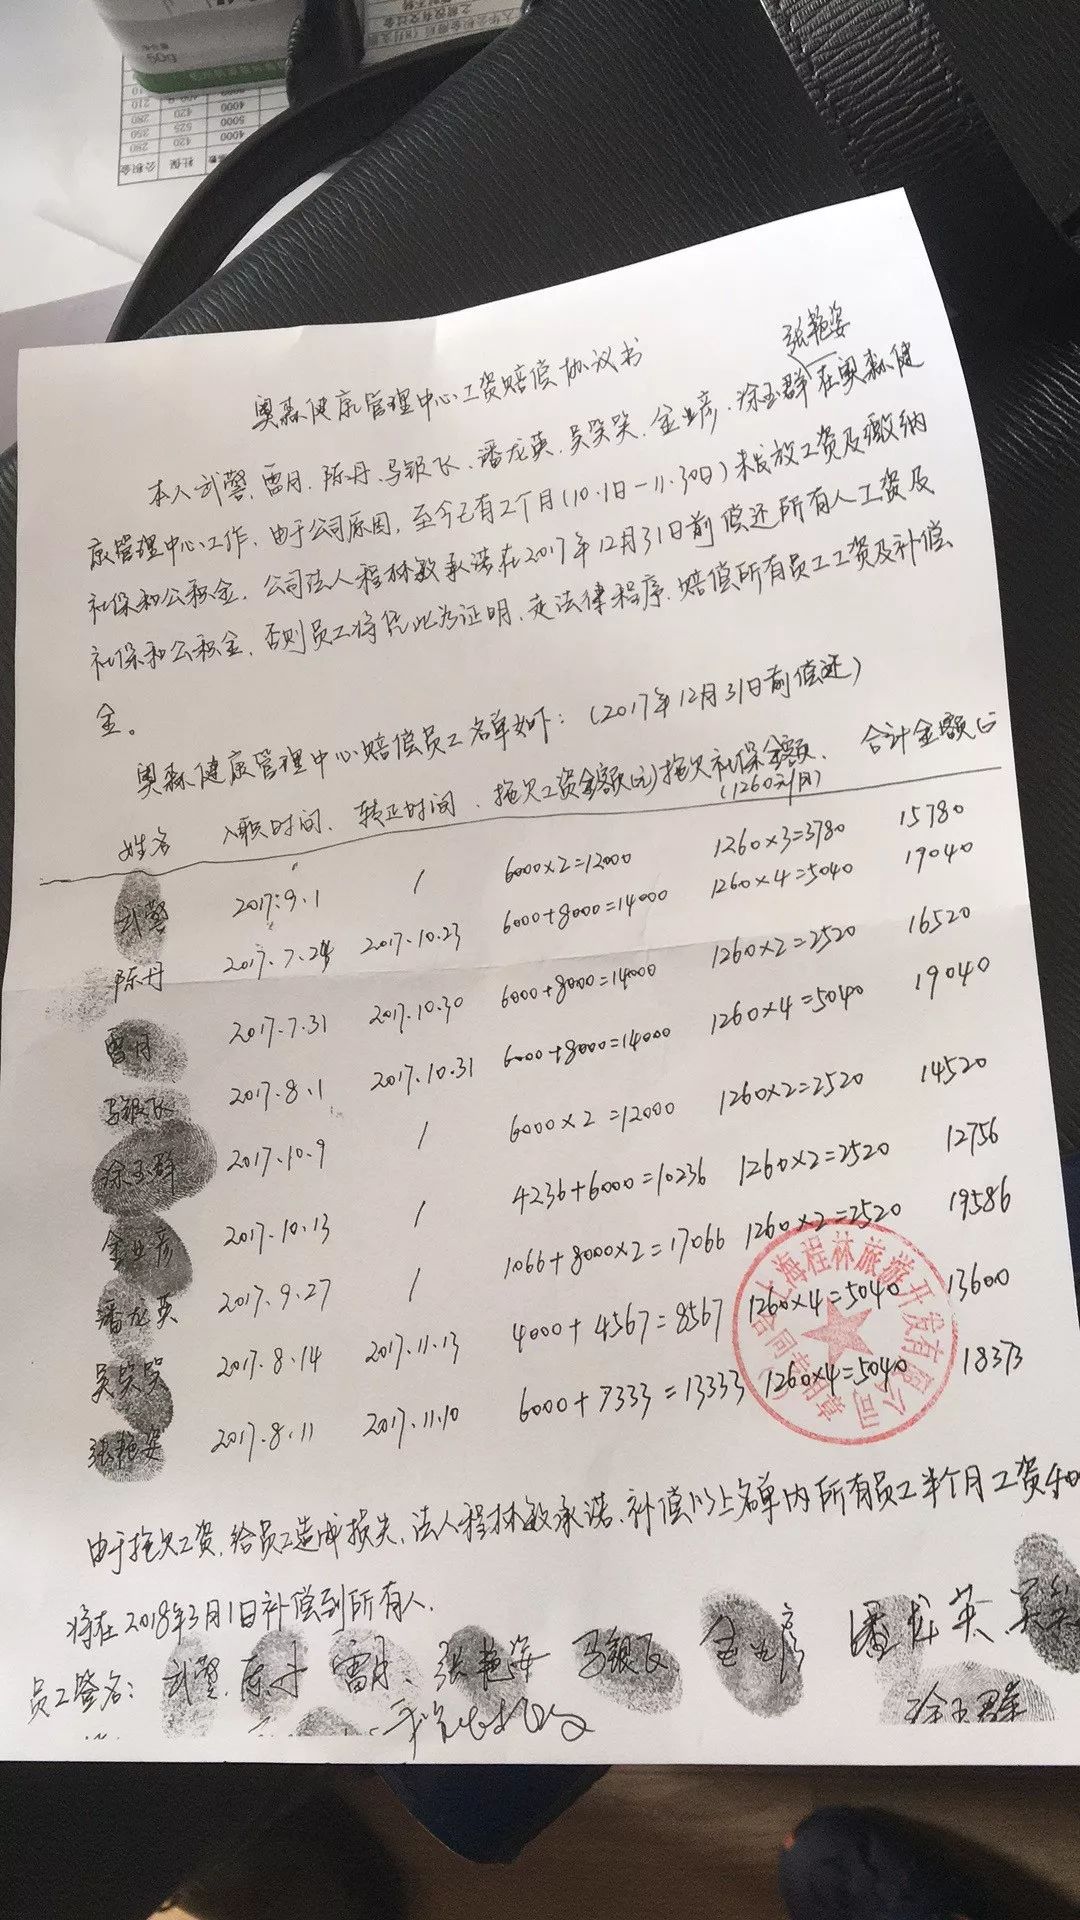 50g
公积金 社保
280 420 4000
350 525 5000
280 420 4000
210
张艳姿
奥森健康管理中心工资赔偿协议书
本人武警、雷月、陈丹、马银飞、潘龙英、吴笑笑、金业彦、涂玉群在奥森健
康管理中心工作，由于公司原因，至今已有2个月(10.1日-11.30日)未发放工资及缴纳
社保和公积金，公司法人程林敏承诺在2017年12月31日前偿还所有人工资及
社保和公积金，否则员工将凭此为证明，走法律程序，赔偿所有员工工资及补偿
金。
奥森健康管理中心赔偿员工名单如下：(2017年12月31日前偿还)
姓名 入职时间、 转正时间、 拖欠工资金额(元) 拖欠社保金额、 合计金额(元
(1260元/月)
武警 2017.9.1 / 6000×2=12000 1260×3=3780 15780
陈丹 2017.7.24 2017.10.23 6000+8000=14000 1260×4=5040 19040
雷月 2017.7.31 2017.10.30 6000+8000=14000 1260×2=2520 16520
马银飞 2017.8.1 2017.10.31 6000+8000=14000 1260×4=5040 19040
涂玉群 2017.10.9 / 6000×2=12000 1260×2=2520 14520
金业彦 2017.10.13 / 4236+6000=10236 1260×2=2520 12756
潘龙英 2017.9.27 / 1066+8000×2=17066 1260×2=2520 19586
吴笑笑 2017.8.14 2017.11.13 4000+4567=8567 1260×4=5040 13600
张艳姿 2017.8.11 2017.11.10 6000+7333=13333 1260×4=5040 18373
上海程林旅游开发有限公司
合同专用章
由于拖欠工资，给员工造成损失，法人程林敏承诺，补偿以上名单内所有员工半个月工资
将在2018年3月1日补偿到所有人．
员工签名： 武警、陈丹 雷月、张艳姿 马银飞 金业彦 潘龙英 吴
涂玉群